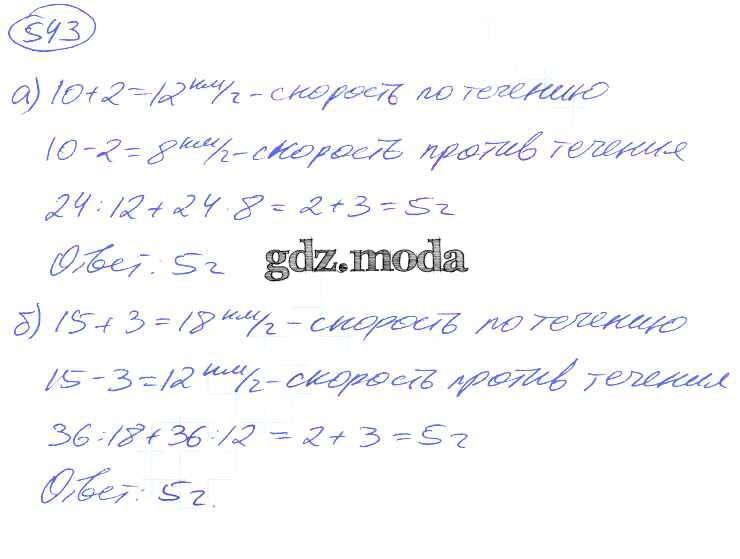 543
а) 10+2=12 км/г - скорость по течению
10-2=8 км/г - скорость против течения
24:12+24·8=2+3=5г
Ответ: 5г
gdz.moda
б) 15+3=18 км/г - скорость по течению
15-3=12 км/г - скорость против течения
36:18+36:12=2+3=5г
Ответ: 5г.